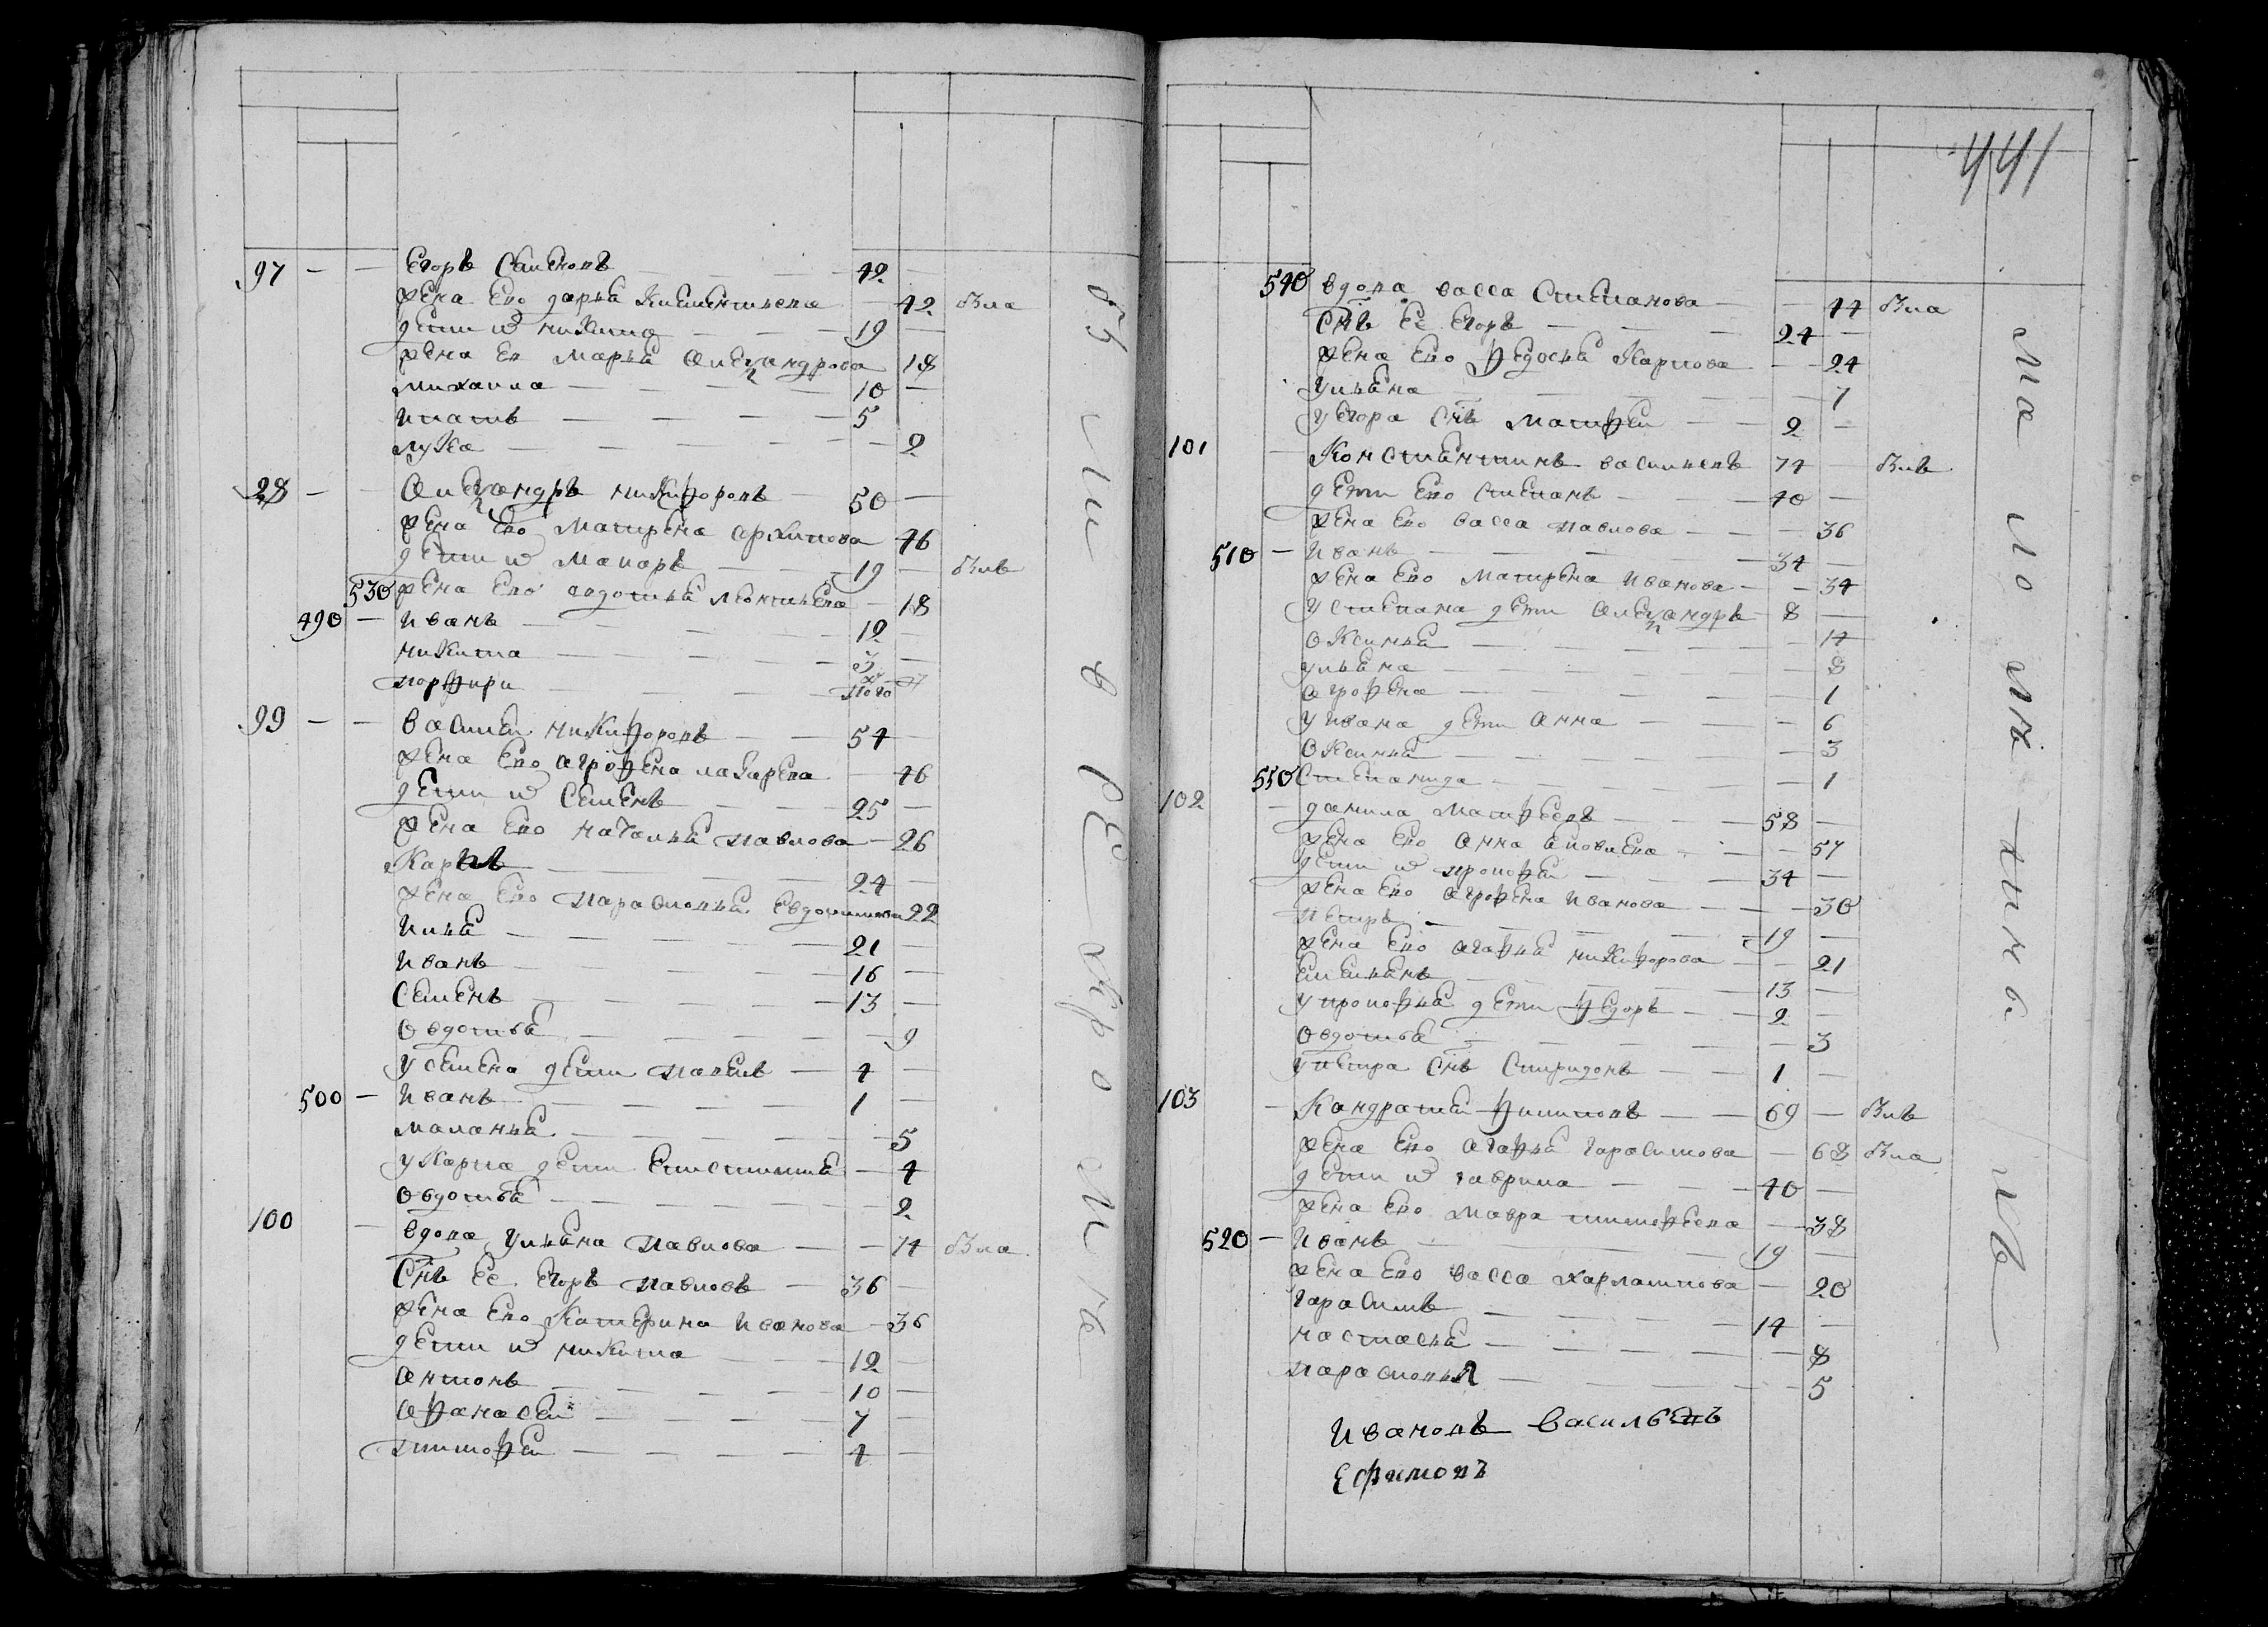 97 — — Егоръ Семеновъ — 42 —
жена его дарья Климентьева — 42 Была
дети их никита — 19 —
жена ег Марья Александрова 18
михаила — 10 —
игнатъ — 5
лука — 2
98 — — Александръ никифоровъ — 50 —
жена его матрена архипова 46
дети их макаръ — 19 — Былъ
530 жена его авдотья леонтьева — 18
490 — иванъ — 12 —
никита — 3 —
порфири
99 — — василеи никифоровъ — 54 —
жена его агрофена лазарева 46
дети их Семенъ — 25 —
жена его наталья павлова — 26
Карпъ — 24 —
жена его парасковья Евдокимова 22
илья — 21 —
иванъ — 16 —
Семенъ — 13 —
овдотья — 9
у семена дети павелъ — 4 —
500 — иванъ — 1 —
маланья — 5
у карпа дети — 4
овдотья — 2
100 — вдова ульяна павлова — 74 Была
Снъ ее Егоръ павловъ — 36 —
жена его Катерина иванова — 36
дети их никита — 12 —
антонъ — 10 —
афанасеи — 7 —
тимофеи — 4 —
къ сей вѣдомости
441
540 вдова васса Степанова — 44 Была
Снъ ее Егоръ — 24 —
жена его федосья Карпова — 24
ульяна — 7
у егора снъ матфеи — 2 —
101 — Константинъ васильевъ 74 — Былъ
дети его степанъ — 40 —
жена его васса павлова — 36
510 — иванъ — 34 —
жена его матрена иванова — 34
у степана дети александръ — 8 —
оксинья — 14
ульяна — 8
агрофена — 1
у ивана дети анна — 6
оксинья — 3
550 Степанида — 1
102 — данила матфеевъ — 58 —
жена его анна — 57
дети их прокофеи — 34 —
жена его агрофена иванова — 30
петръ — 19 —
жена его агафья никифорова — 21
емельянъ — 13 —
у прокофья дети федоръ — 2 —
овдотья — 3
у петра снъ Спиридонъ — 1 —
103 — Кандратеи филиповъ — 69 — Былъ
жена его агафья гарасимова — 68 Была
дети их гаврила — 40 —
жена его мавра тимофеева — 38
520 — иванъ — 19 —
жена его васса харлампова — 20
гарасимъ — 14 —
настасья — 8
парасковья — 5
Ивановъ Васильевъ
Ефимовъ